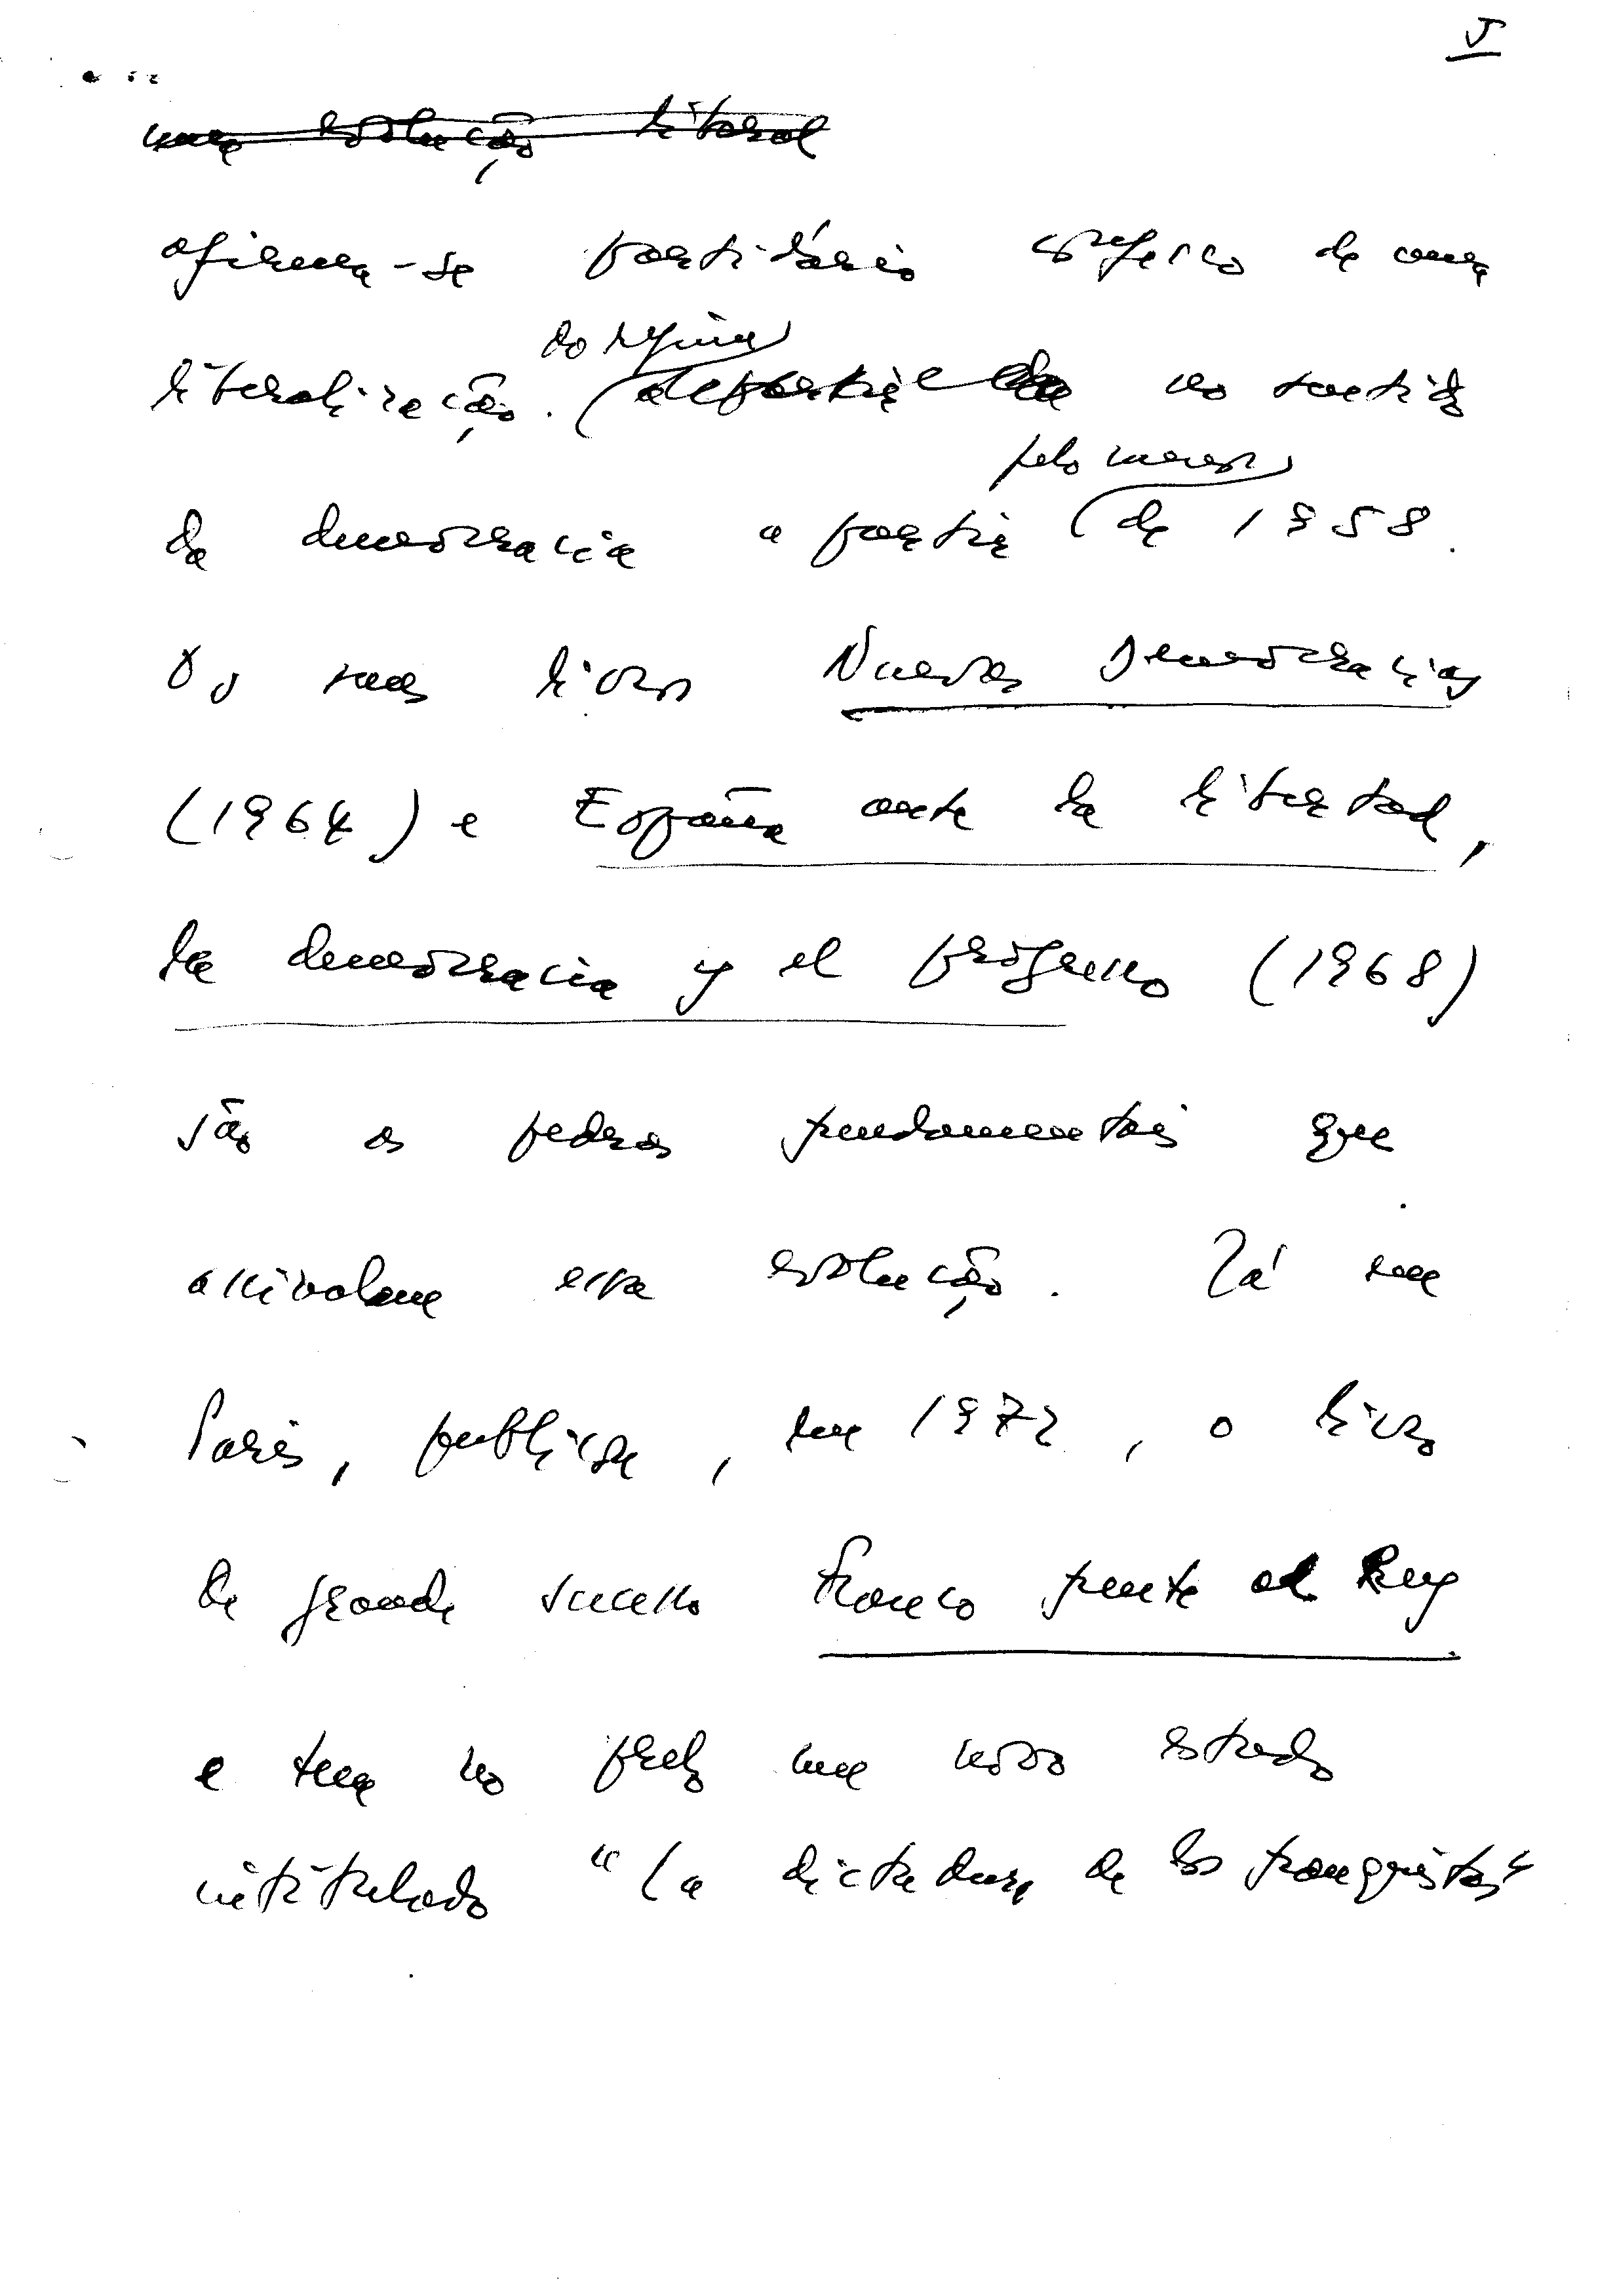 5
uma evolução liberal
afirma-se partidário expresso de uma
do regime
liberalização. a partir de no sentido
pelo menos
da democracia a partir de 1958.
Os seus livros Nuevas Democracias
(1964) e España ante la libertad,
la democracia y el progreso (1968)
são as pedras fundamentais que
assinalam essa evolução. Já em
Paris, publica, em 1972, o livro
de grande sucesso Franco frente al Rey
e tem no prelo um novo estudo
intitulado "La dictadura de los franquistas"